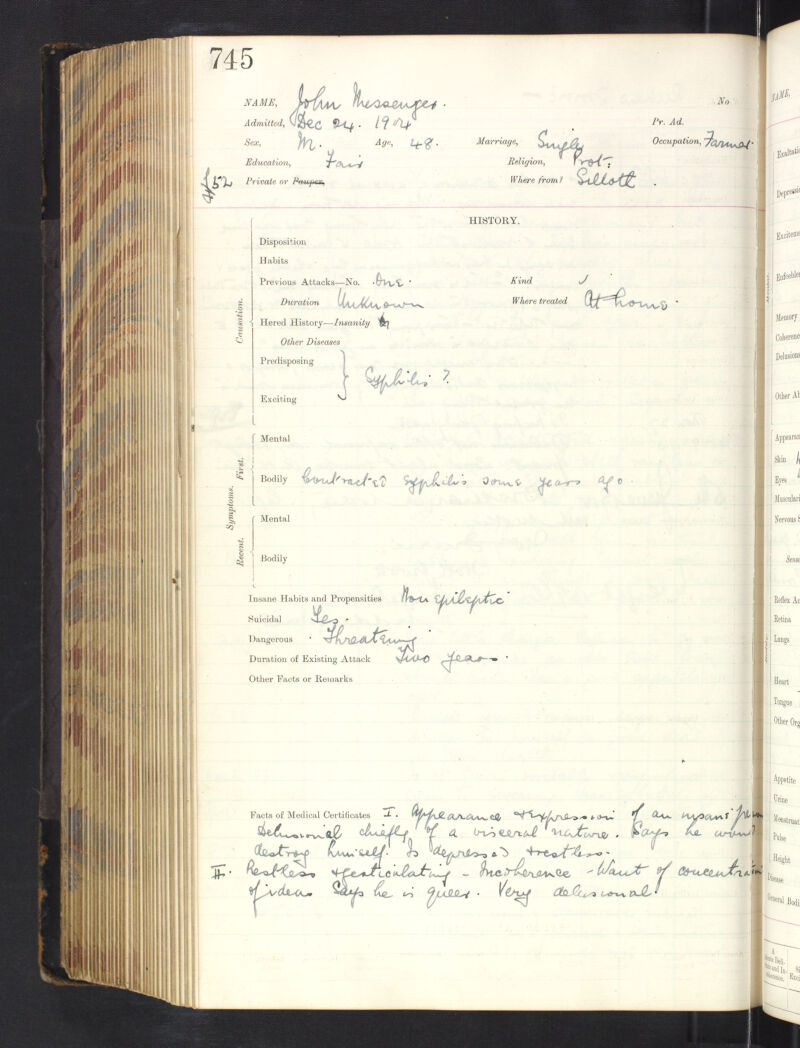 745
NAME, John Messenger. No
Admitted, Dec 24. 1904 Pr. Ad.
Sex, M. Age, 48. Marriage, Single Occupation, Farmer
Education, Fair Religion, Prot:
£52 Private or Pauper, Where from? Silloth.
HISTORY.
Disposition
Habits
Previous Attacks—No. One. Kind
Duration Unknown Where treated At home.
Causation.
Hered History—Insanity
Other Diseases
Predisposing
Syphilis ?
Exciting
Symptoms.
First.
Mental
Bodily Contracted syphilis some years ago.
Recent.
Mental
Bodily
Insane Habits and Propensities Non epileptic
Suicidal Yes.
Dangerous Threatening
Duration of Existing Attack Two years.
Other Facts or Remarks
Facts of Medical Certificates I. Appearance & expression of an insane
Delusional chiefly of a visceral nature. Says he would
destroy himself. Is depressed & restless.
II. Restless & gesticulating - Incoherence - Want of concentration
of ideas Says he is queer. Very delusional.
NAME,
Exaltati
Depressi
Exciteme
Enfeeble
Memory
Coherenc
Delusions
Other Ab
Appearan
Skin
Eyes
Musculari
Nervous S
Reflex Ac
Retina
Lungs
Heart
Tongue
Other Org
Appetite
Urine
Menstruat
Pulse
Height
Disease
General Bodi